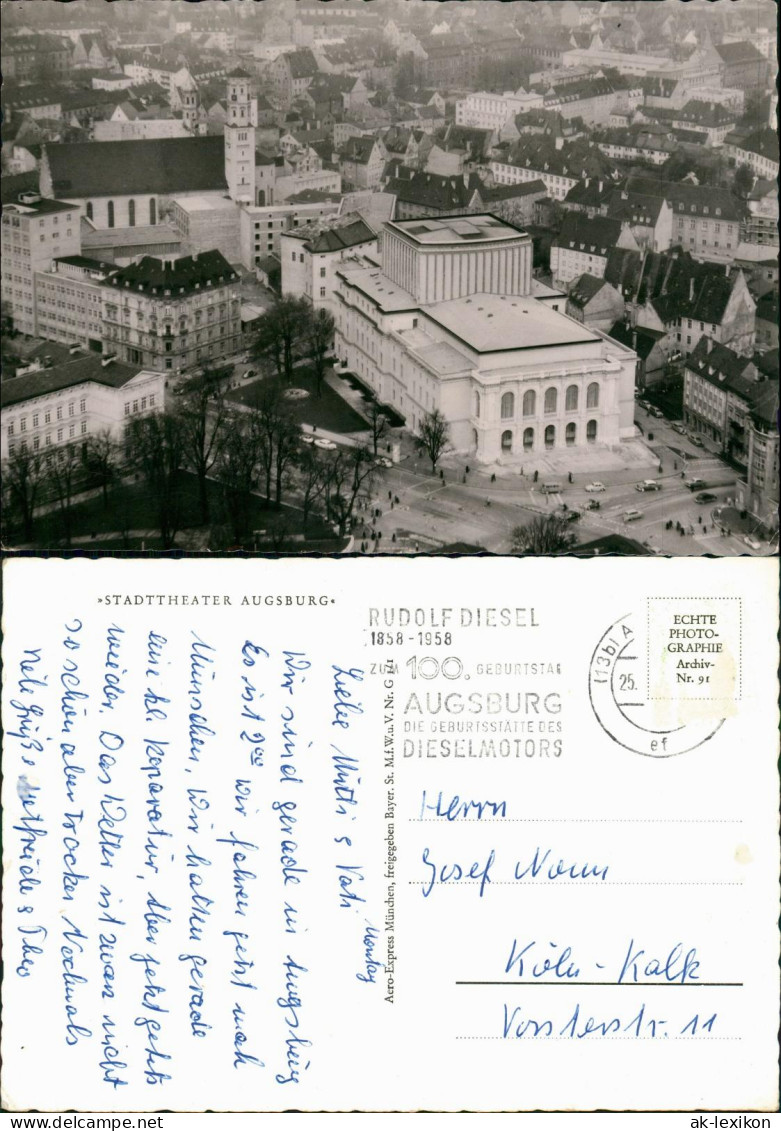 »STADTTHEATER AUGSBURG«
RUDOLF DIESEL
1858-1958
ZUM 100. GEBURTSTAG
AUGSBURG
DIE GEBURTSSTÄTTE DES
DIESELMOTORS
(13b) A
25.
ef
ECHTE
PHOTO-
GRAPHIE
Archiv-
Nr. 91
Aero-Express München, freigegeben Bayer. St. M.f.W.u.V. Nr. G
Montag
Liebe Mutti & Vati
Wir sind gerade in Augsburg
Es ist 2⁰⁰ wir fahren jetzt nach
München, Wir hatten gerade
eine kl. Reparatur, Aber jetzt gehts
wieder. Das Wetter ist zwar nicht
so schön aber trocken Nochmals
viele Grüße & Theo
Herrn
Josef Nonn
Köln-Kalk
Vorsterstr. 11
www.ansichtskarten-lexikon.de
ak-lexikon